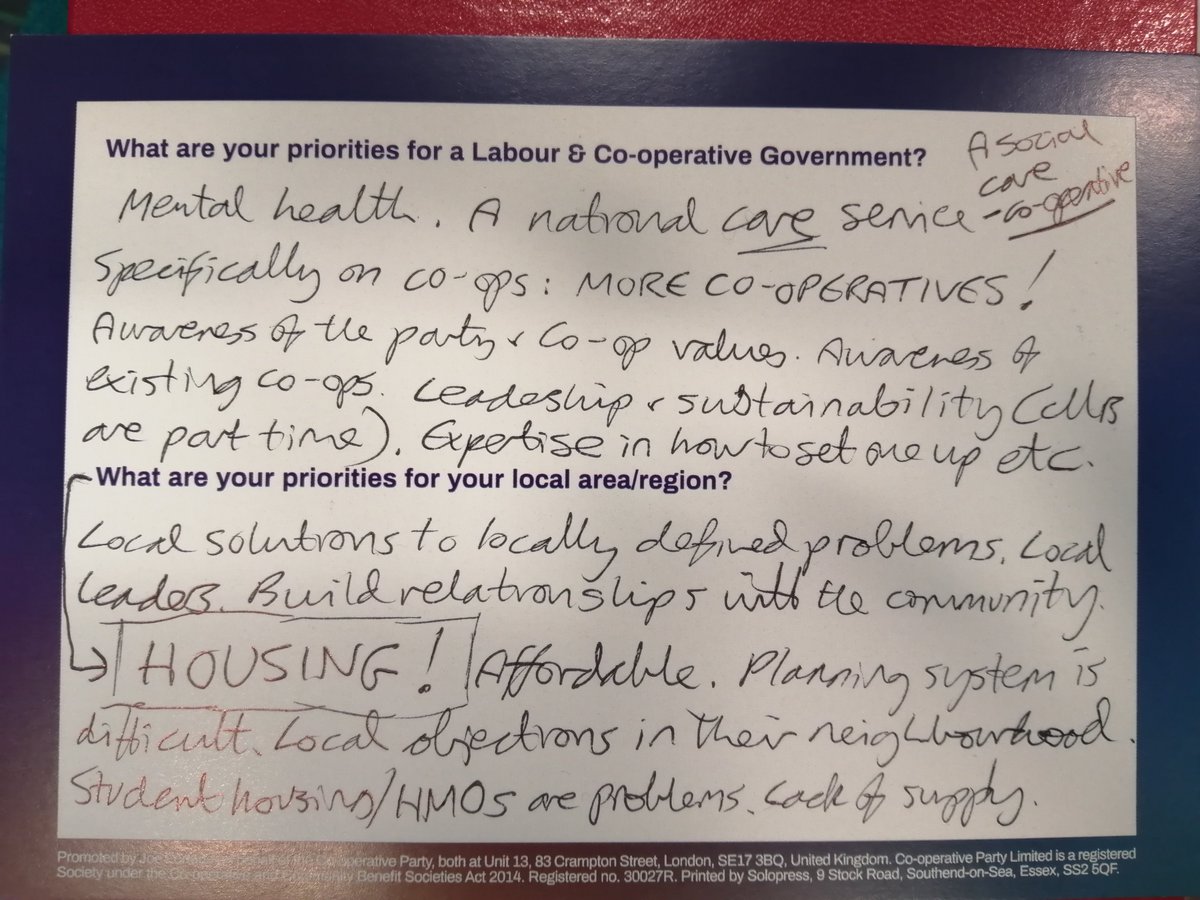 What are your priorities for a Labour & Co-operative Government?
A social
care
co-operative
Mental health. A national care service -
Specifically on co-ops: MORE CO-OPERATIVES!
Awareness of the party & Co-op values. Awareness of
existing co-ops. Leadership & sustainability (cllrs
are part time). Expertise in how to set one up etc.
What are your priorities for your local area/region?
Local solutions to locally defined problems. Local
leaders. Build relationships with the community.
→ HOUSING! Affordable. Planning system is
difficult. Local objections in their neighbourhood.
Student housing/HMOs are problems. Lack of supply.
Promoted by Joe behalf of the Co-operative Party, both at Unit 13, 83 Crampton Street, London, SE17 3BQ, United Kingdom. Co-operative Party Limited is a registered
Society under the Co-operative and Community Benefit Societies Act 2014. Registered no. 30027R. Printed by Solopress, 9 Stock Road, Southend-on-Sea, Essex, SS2 5QF.